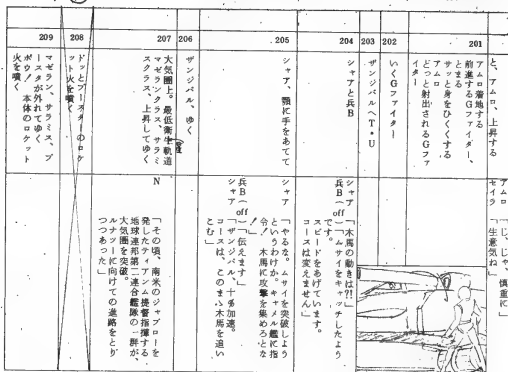 と、アムロ、上昇する
アムロ
セイラ
「じ、じゃ、慎重に」
「生意気ね」
201
アムロ着地する
前進するGファイター、
とまる
サッと身をひくくする
アムロ
どっと射出されるGファ
イター
202
いくGファイター
203
ザンジバルへT・U
204
シャアと兵B
シャア
「木馬の動きは?!」
兵B(off)
「ムサイをキャッチしたよう
です。
スピードをあげています。
コースは変えません」
205
シャア、顎に手をあてて
シャア
「やるな。ムサイを突破しよう
というわけか。キャメル艦に指
令!木馬に攻撃を集めろとな
!」
兵B(off)
「伝えます」
シャア
「ザンジバル、十%加速。
コースは、このまま木馬を追い
こむ」
206
ザンジバル、ゆく
207
大気圏上。最低衛生軌道
マゼランクラス、サラミ
スクラス、上昇してゆく
N
「その頃、南米のジャブローを
発したティアンム提督指揮する
地球連邦第二連合艦隊の一群が、
大気圏を突破。
ルナツーに向けての進路をとり
つつあった」
208
ドッとブースターのロケ
ット火を噴く
209
マゼラン、サラミス、ブ
ースタが外れてゆく
ボウ!本体のロケット
火を噴く